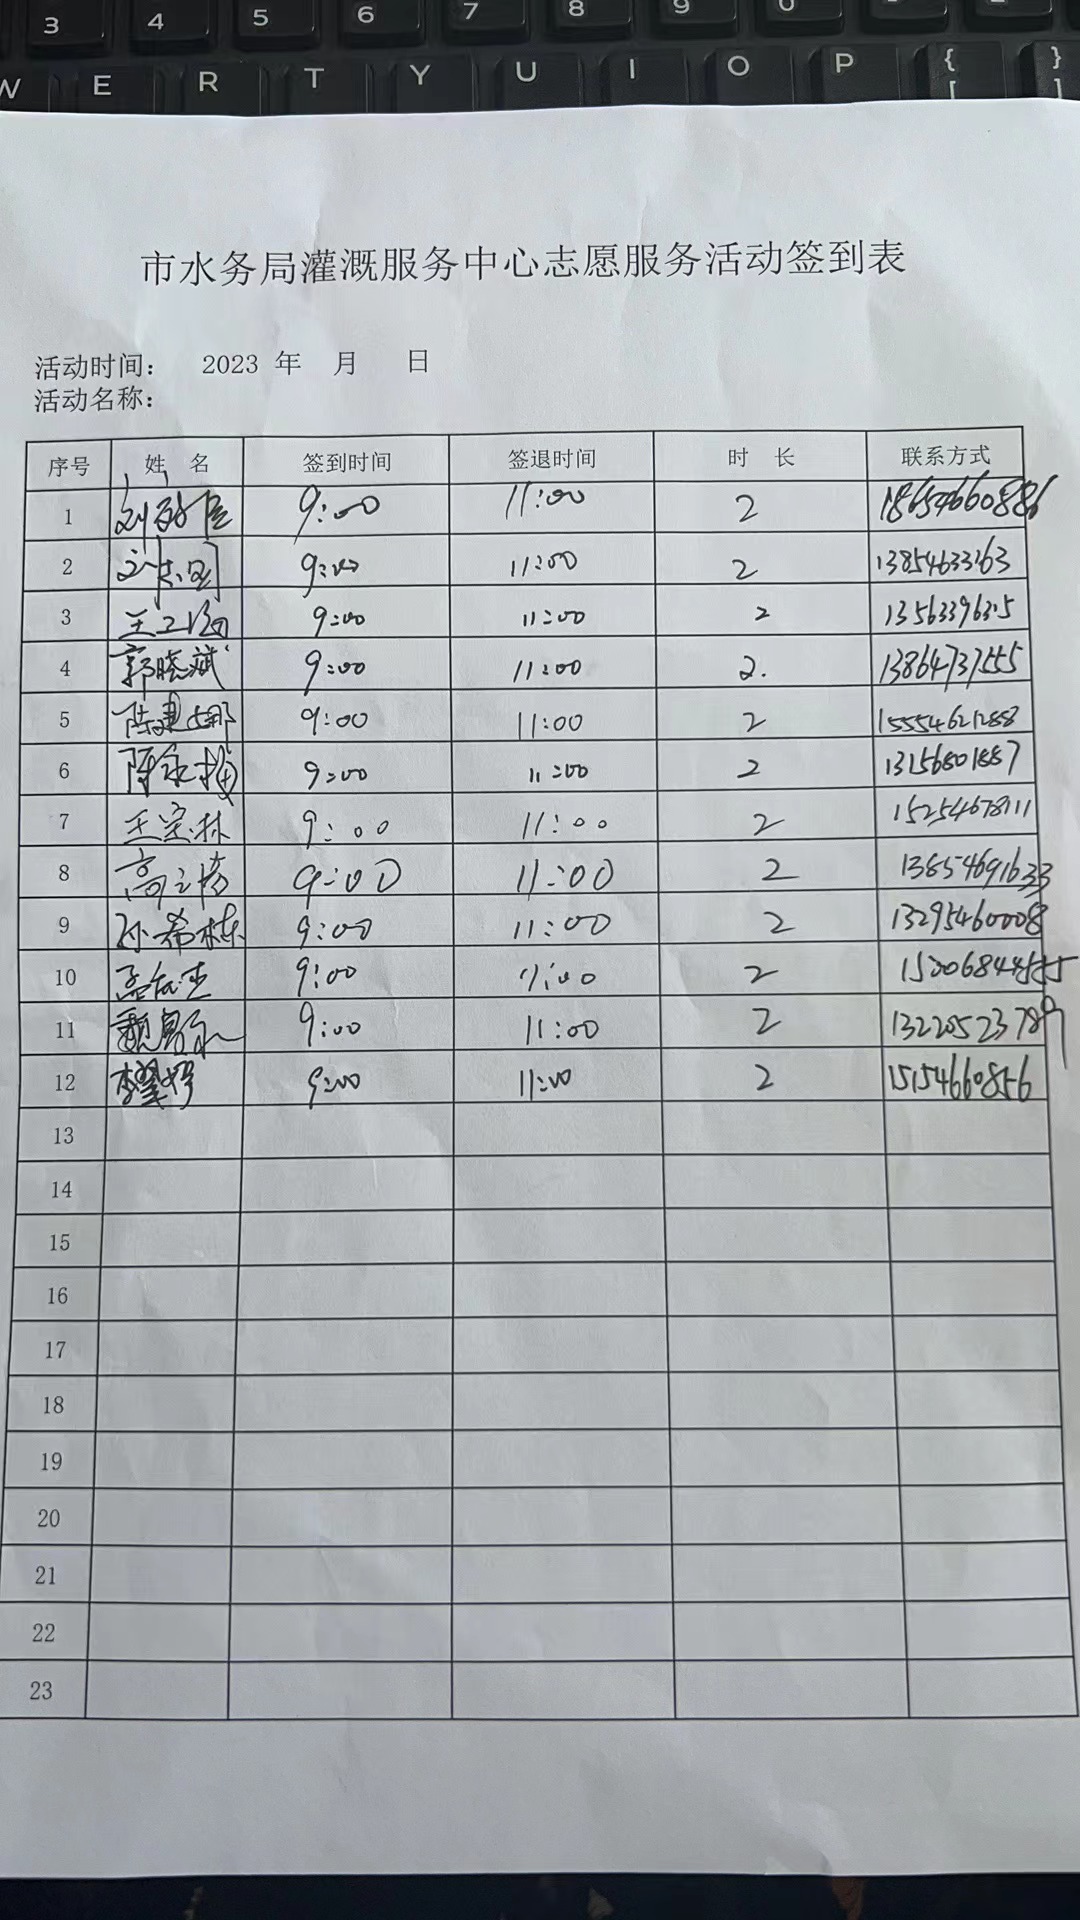 3 4 5 6 7 8 9 0
W E R T Y U I O P { [ } ]
市水务局灌溉服务中心志愿服务活动签到表
活动时间： 2023 年 月 日
活动名称：
序号 姓 名 签到时间 签退时间 时 长 联系方式
1 9:00 11:00 2 18654660886
2 9:00 11:00 2 13854633163
3 9:00 11:00 2
4 郭晓斌 9:00 11:00 2. 13864737555
5 陈建娜 9:00 11:00 2 15554621288
6 陈永梅 9:00 11:00 2 13156801887
7 王宝林 9:00 11:00 2 15254678111
8 9:00 11:00 2 13854691633
9 孙希栋 9:00 11:00 2 13295460008
10 9:00 11:00 2 15006844555
11 9:00 11:00 2 13220523789
12 9:00 11:00 2 15154660856
13
14
15
16
17
18
19
20
21
22
23